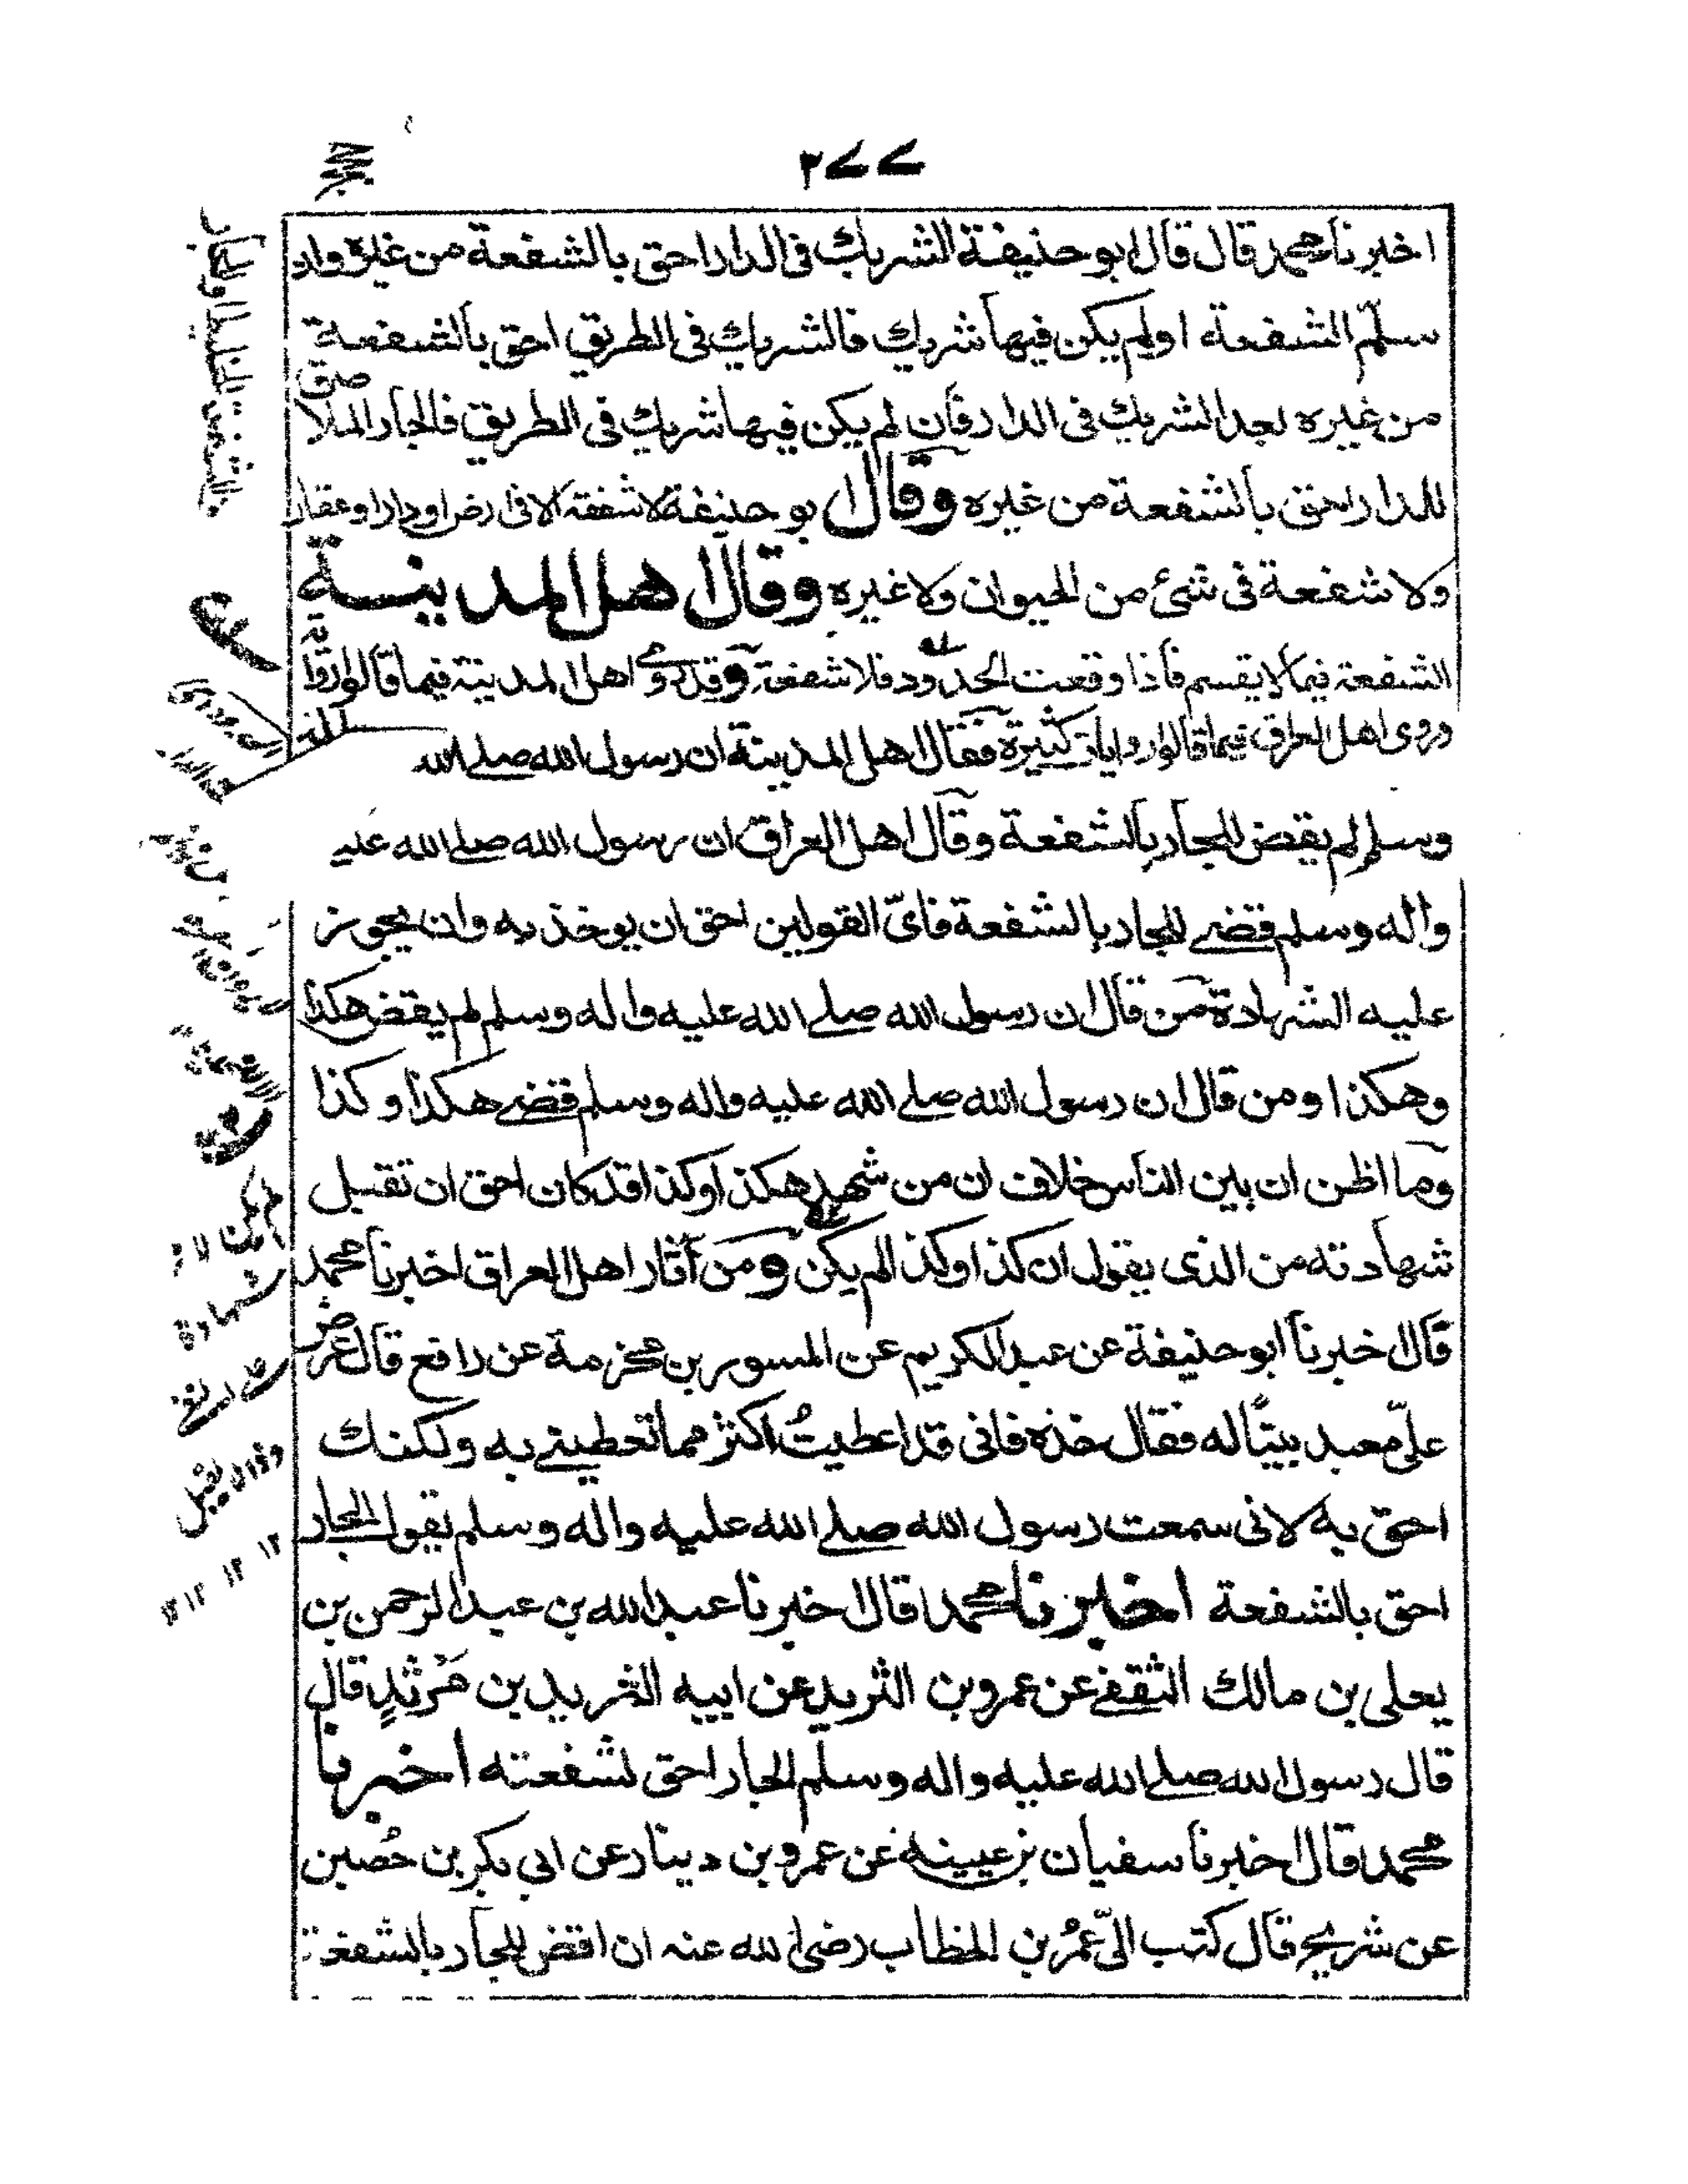 ٢٧٧
اخبرنا محمد قال قال ابو حنيفة الشريك فى الدار احق بالشفعة من غيره واذ
سلّم الشفعة او لم يكن فيها شريك فالشريك فى الطريق احق بالشفعة
من غيره بعد الشريك فى الدار فان لم يكن فيها شريك فى الطريق فالجار الملاصق
للدار احق بالشفعة من غيره وقال ابو حنيفة لا شفعة الا فى ارض او دار او عقار
ولا شفعة فى شئ من الحيوان ولا غيره وقال اهل المدينة
الشفعة فيما لا يقسم فاذا وقعت الحدود فلا شفعة وقد روى اهل المدينة فيما قالوا روايات
وروى اهل العراق فيما قالوا روايات كثيرة فقال اهل المدينة ان رسول الله صلے الله
وسلم لم يقض للجار بالشفعة وقال اهل العراق ان رسول الله صلے الله عليه
واله وسلم قضے للجار بالشفعة فاىّ القولين احق ان يوخذ به وان يجوز
عليه الشهادة من قال ان رسول الله صلے الله عليه واله وسلم لم يقض هكذا
وهكذا او من قال ان رسول الله صلے الله عليه واله وسلم قضے هكذا وكذا
وما اظن ان بين الناس خلاف ان من شهد هكذا او كذا قد كان احق ان تقبل
شهادته من الذى يقول ان كذا وكذا لم يكن ومن آثار اهل العراق اخبرنا محمد
قال اخبرنا ابو حنيفة عن عبد الكريم عن المسور بن مخرمة عن رافع قال عرض
علىّ معبد بيتًا له فقال خذه فانى قد اعطيتُ اكثر مما تعطينے به ولكنك
احق به لانى سمعت رسول الله صلے الله عليه واله وسلم يقول الجار
احق بالشفعة اخبرنا محمد قال اخبرنا عبد الله بن عبد الرحمن بن
يعلى بن مالك الثقفے عن عمرو بن الثريد عن ابيه الثريد بن مَرْثدٍ قال
قال رسول الله صلے الله عليه واله وسلم الجار احق لشفعته اخبرنا
محمد قال اخبرنا سفيان بن عيينه عن عمرو بن دينار عن ابى بكر بن حُصين
عن شريح قال كتب الىّ عُمرُ بن الخطاب رضى الله عنه ان اقض للجار بالشفعة